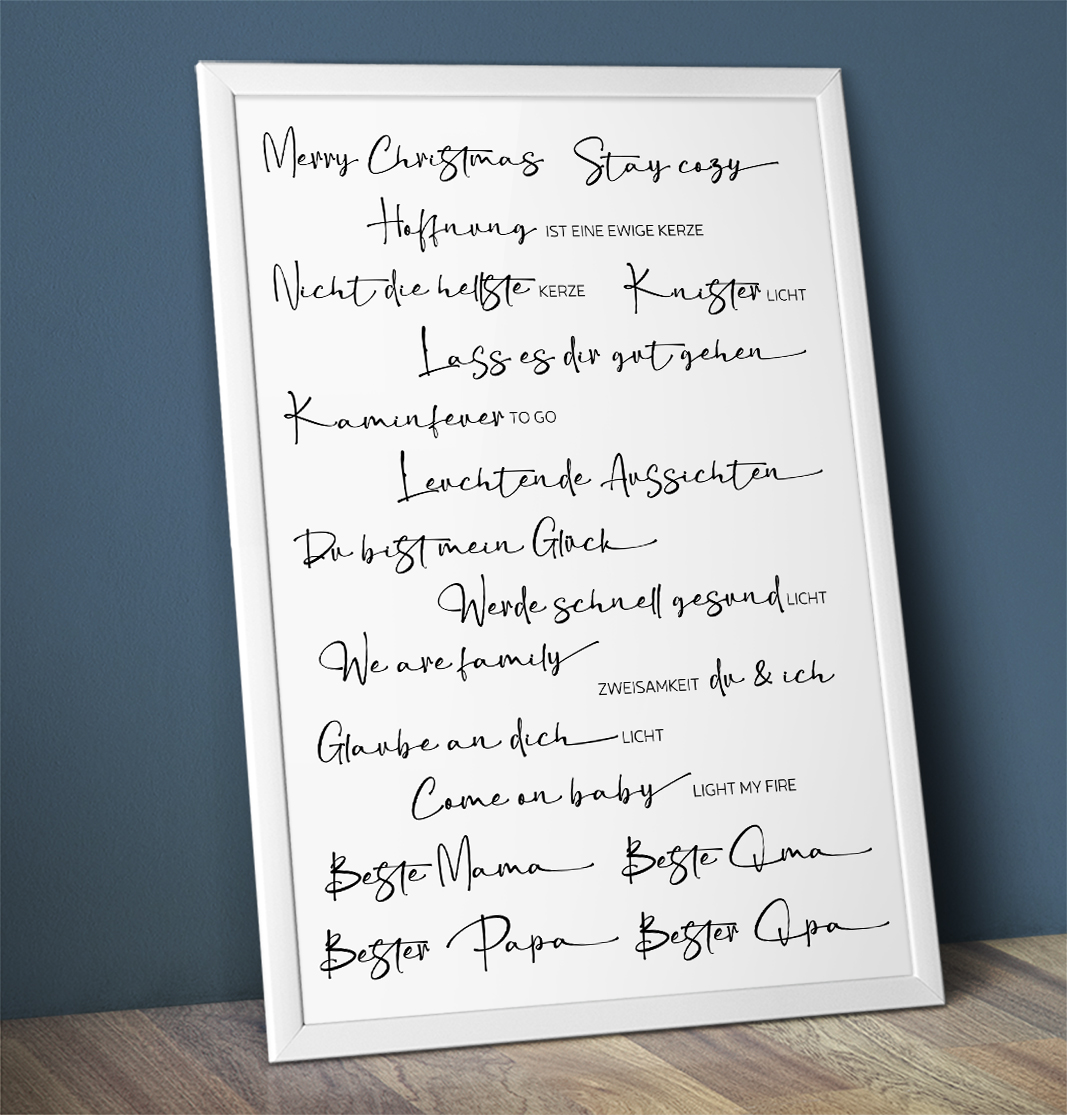 Merry Christmas Stay cozy
Hoffnung IST EINE EWIGE KERZE
Nicht die hellste KERZE Knister LICHT
Lass es dir gut gehen
Kaminfeuer TO GO
Leuchtende Aussichten
Du bist mein Glück
Werde schnell gesund LICHT
We are family
ZWEISAMKEIT du & ich
Glaube an dich LICHT
Come on baby LIGHT MY FIRE
Beste Mama Beste Oma
Bester Papa Bester Opa